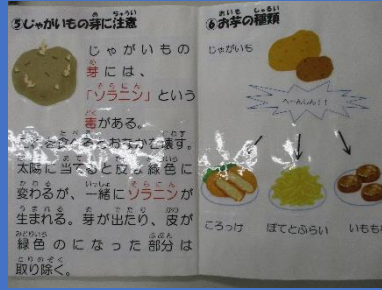 ⑤じゃがいもの芽に注意
じゃがいもの
芽には、
「ソラニン」という
毒がある。
これを食べるとおなかを壊す。
太陽に当てると皮は緑色に
変わるが、一緒にソラニンが
生まれる。芽が出たり、皮が
緑色のになった部分は
取り除く。
⑥お芋の種類
じゃがいも
へ〜んしん!!
ころっけ
ぽてとふらい
いももち